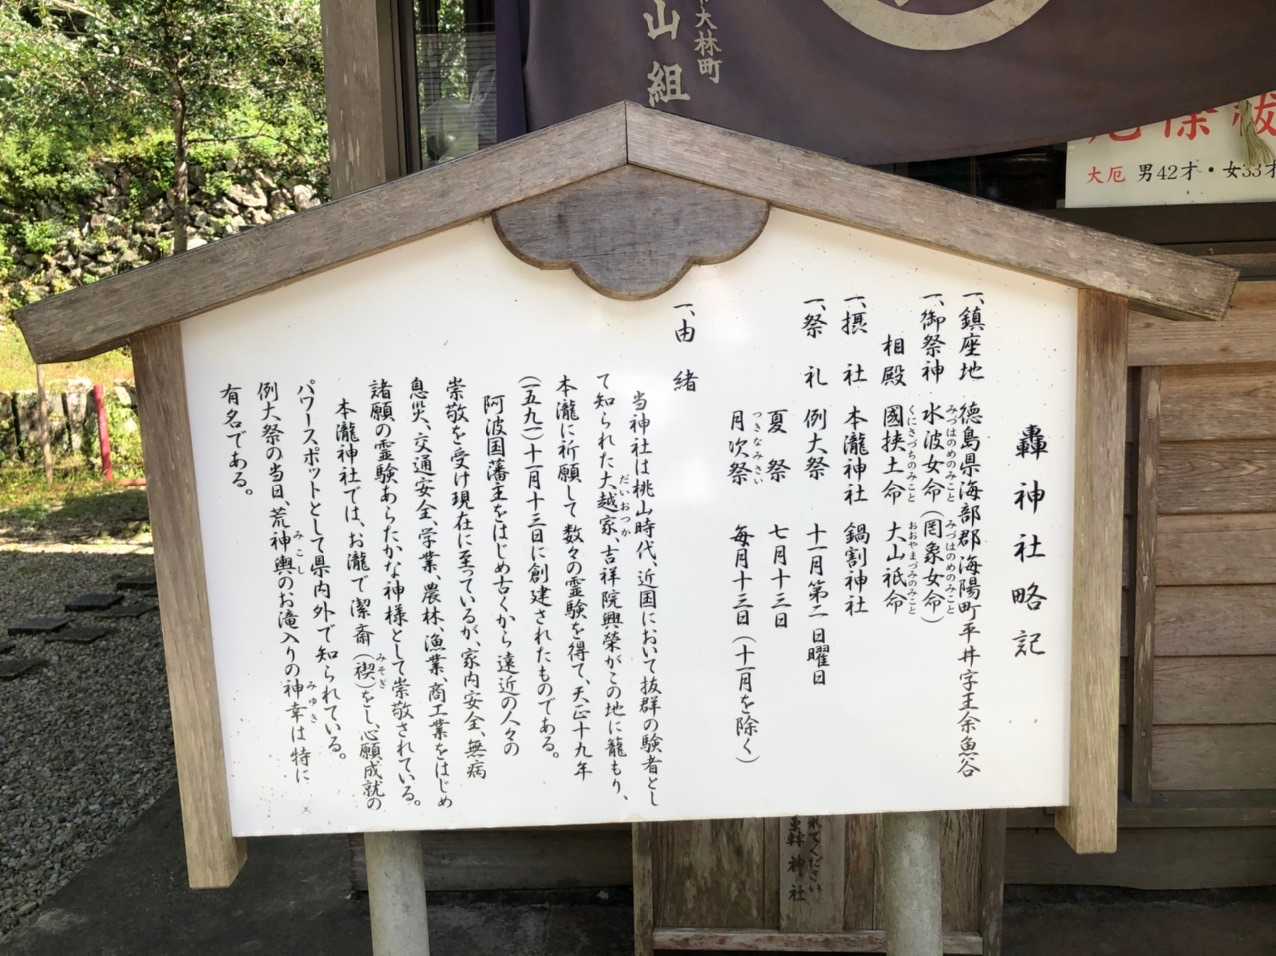 轟神社略記
一、鎮座地 徳島県海部郡海陽町平井字王余魚谷
一、御祭神 水波女命(罔象女命)
みづはのめのみこと みづはのめのみこと
相殿 國挟土命 大山祇命
くにさづちのみこと おおやまづみのみこと
一、摂社 本瀧神社 鍋割神社
一、祭礼 例大祭 十一月第二日曜日
夏祭 七月十三日
月次祭 毎月十三日(十一月を除く)
つきなみさい
一、由緒
当神社は桃山時代、近国において抜群の験者とし
て知られた大越家、吉祥院興榮がこの地に籠もり、
だいおつか
本瀧に祈願して数々の霊験を得て、天正十九年
(一五九一)十一月十三日に創建されたものである。
阿波国藩主をはじめ古くから遠近の人々の
崇敬を受け現在に至っているが、家内安全、無病
息災、交通安全、学業、農林、漁業、商工業をはじめ
諸願の霊験あらたかな神様として崇敬されている。
本瀧神社では、お瀧で潔斎(禊)をし、心願成就の
みそぎ
パワースポットとして県内外で知られている。
例大祭の当日、荒神輿のお滝入りの神幸は特に
みこし みゆき
有名である。
大林町
山組
厄除祓
大厄 男42才・女33才
てください
神社